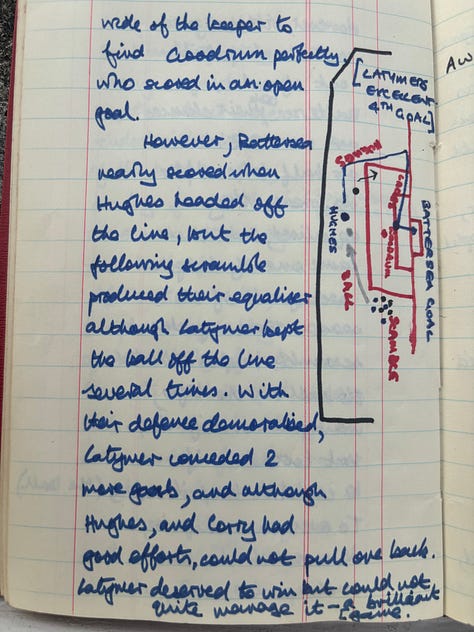 wide of the keeper to
find Goodrum perfectly,
who scored in an open
goal.
However, Battersea
nearly scored when
Hughes headed off
the line, but the
following scramble
produced their equaliser
although Latymer kept
the ball off the line
several times. With
their defence demoralised,
Latymer conceded 2
more goals, and although
Hughes, and Corry had
good efforts, could not pull one back.
Latymer deserved to win but could not
quite manage it - a brilliant
game.
[LATYMERS
EXCELLENT
4TH GOAL]
HUGHES
HUGHES
BALL
GOODRUM
SCRAMBLE
BATTERSEA GOAL
AW